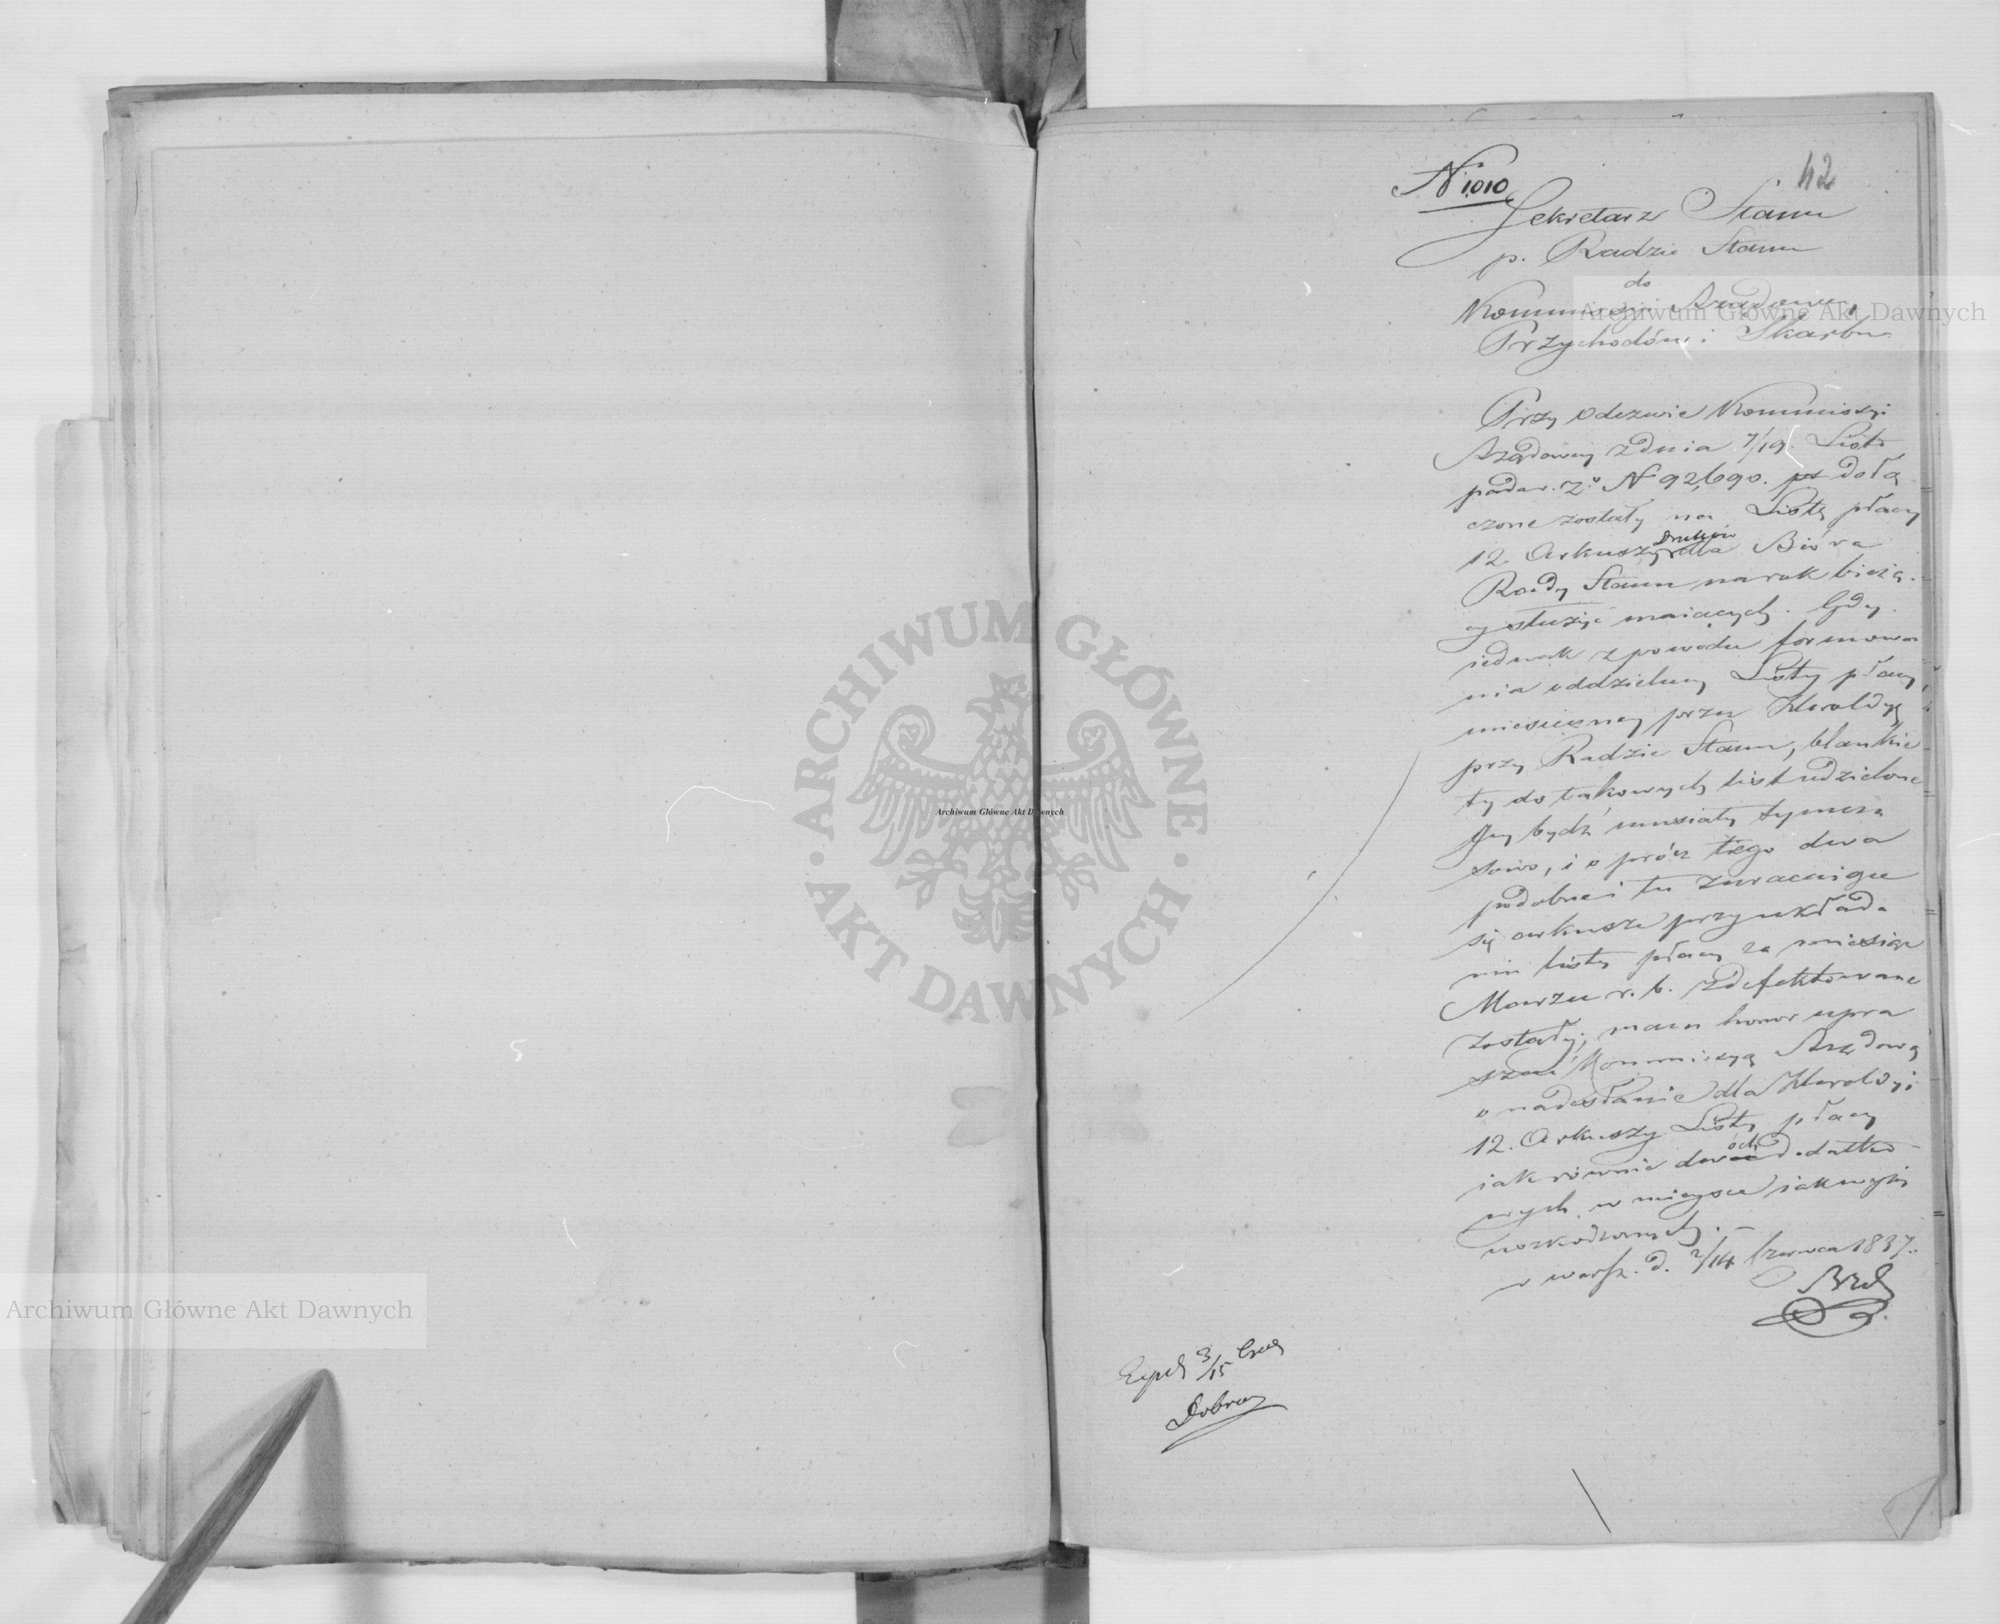 42
N 1010
Sekretarz Stanu
p. Radzie Stanu
do
Kommissyi Rządowey
Przychodów i Skarbu
Przy Odezwie Kommissyi
Rządowey z dnia 7/19. Listo
pada r. z. N 92,690. dołą
czone zostały na Listę płacy
12 Arkuszy Druków dla Bióra
Rady Stanu na rok bieżą-
cy służyć maiących. Gdy
iednak z powodu formowa
nia oddzielney Listy płacy
miesięczney przez Heroldyą
przy Radzie Stanu, blankie
ty do takowych list udzielone
Jey bydź musiały tymcza
sowo, i oprócz tego dwa
podobne i tu zwracaiące
się arkusze przy układa
niu listy płacy za miesiąc
Marzec r. b. zdefektowane
zostały; mam honor upra
szać Kommissyą Rządową
o nadesłanie dla Heroldyi
12. Arkuszy Listy płacy
iak równie dwóch dodatko
wych w mieysce iak wyżey
uszkodzonych. —
w Warsz. d. 2/14 Czerwca 1837.
Exped 3/15 Czer
Archiwum Główne Akt Dawnych
ARCHIWUM GŁÓWNE
AKT DAWNYCH
Archiwum Główne Akt Dawnych
Archiwum Główne Akt Dawnych